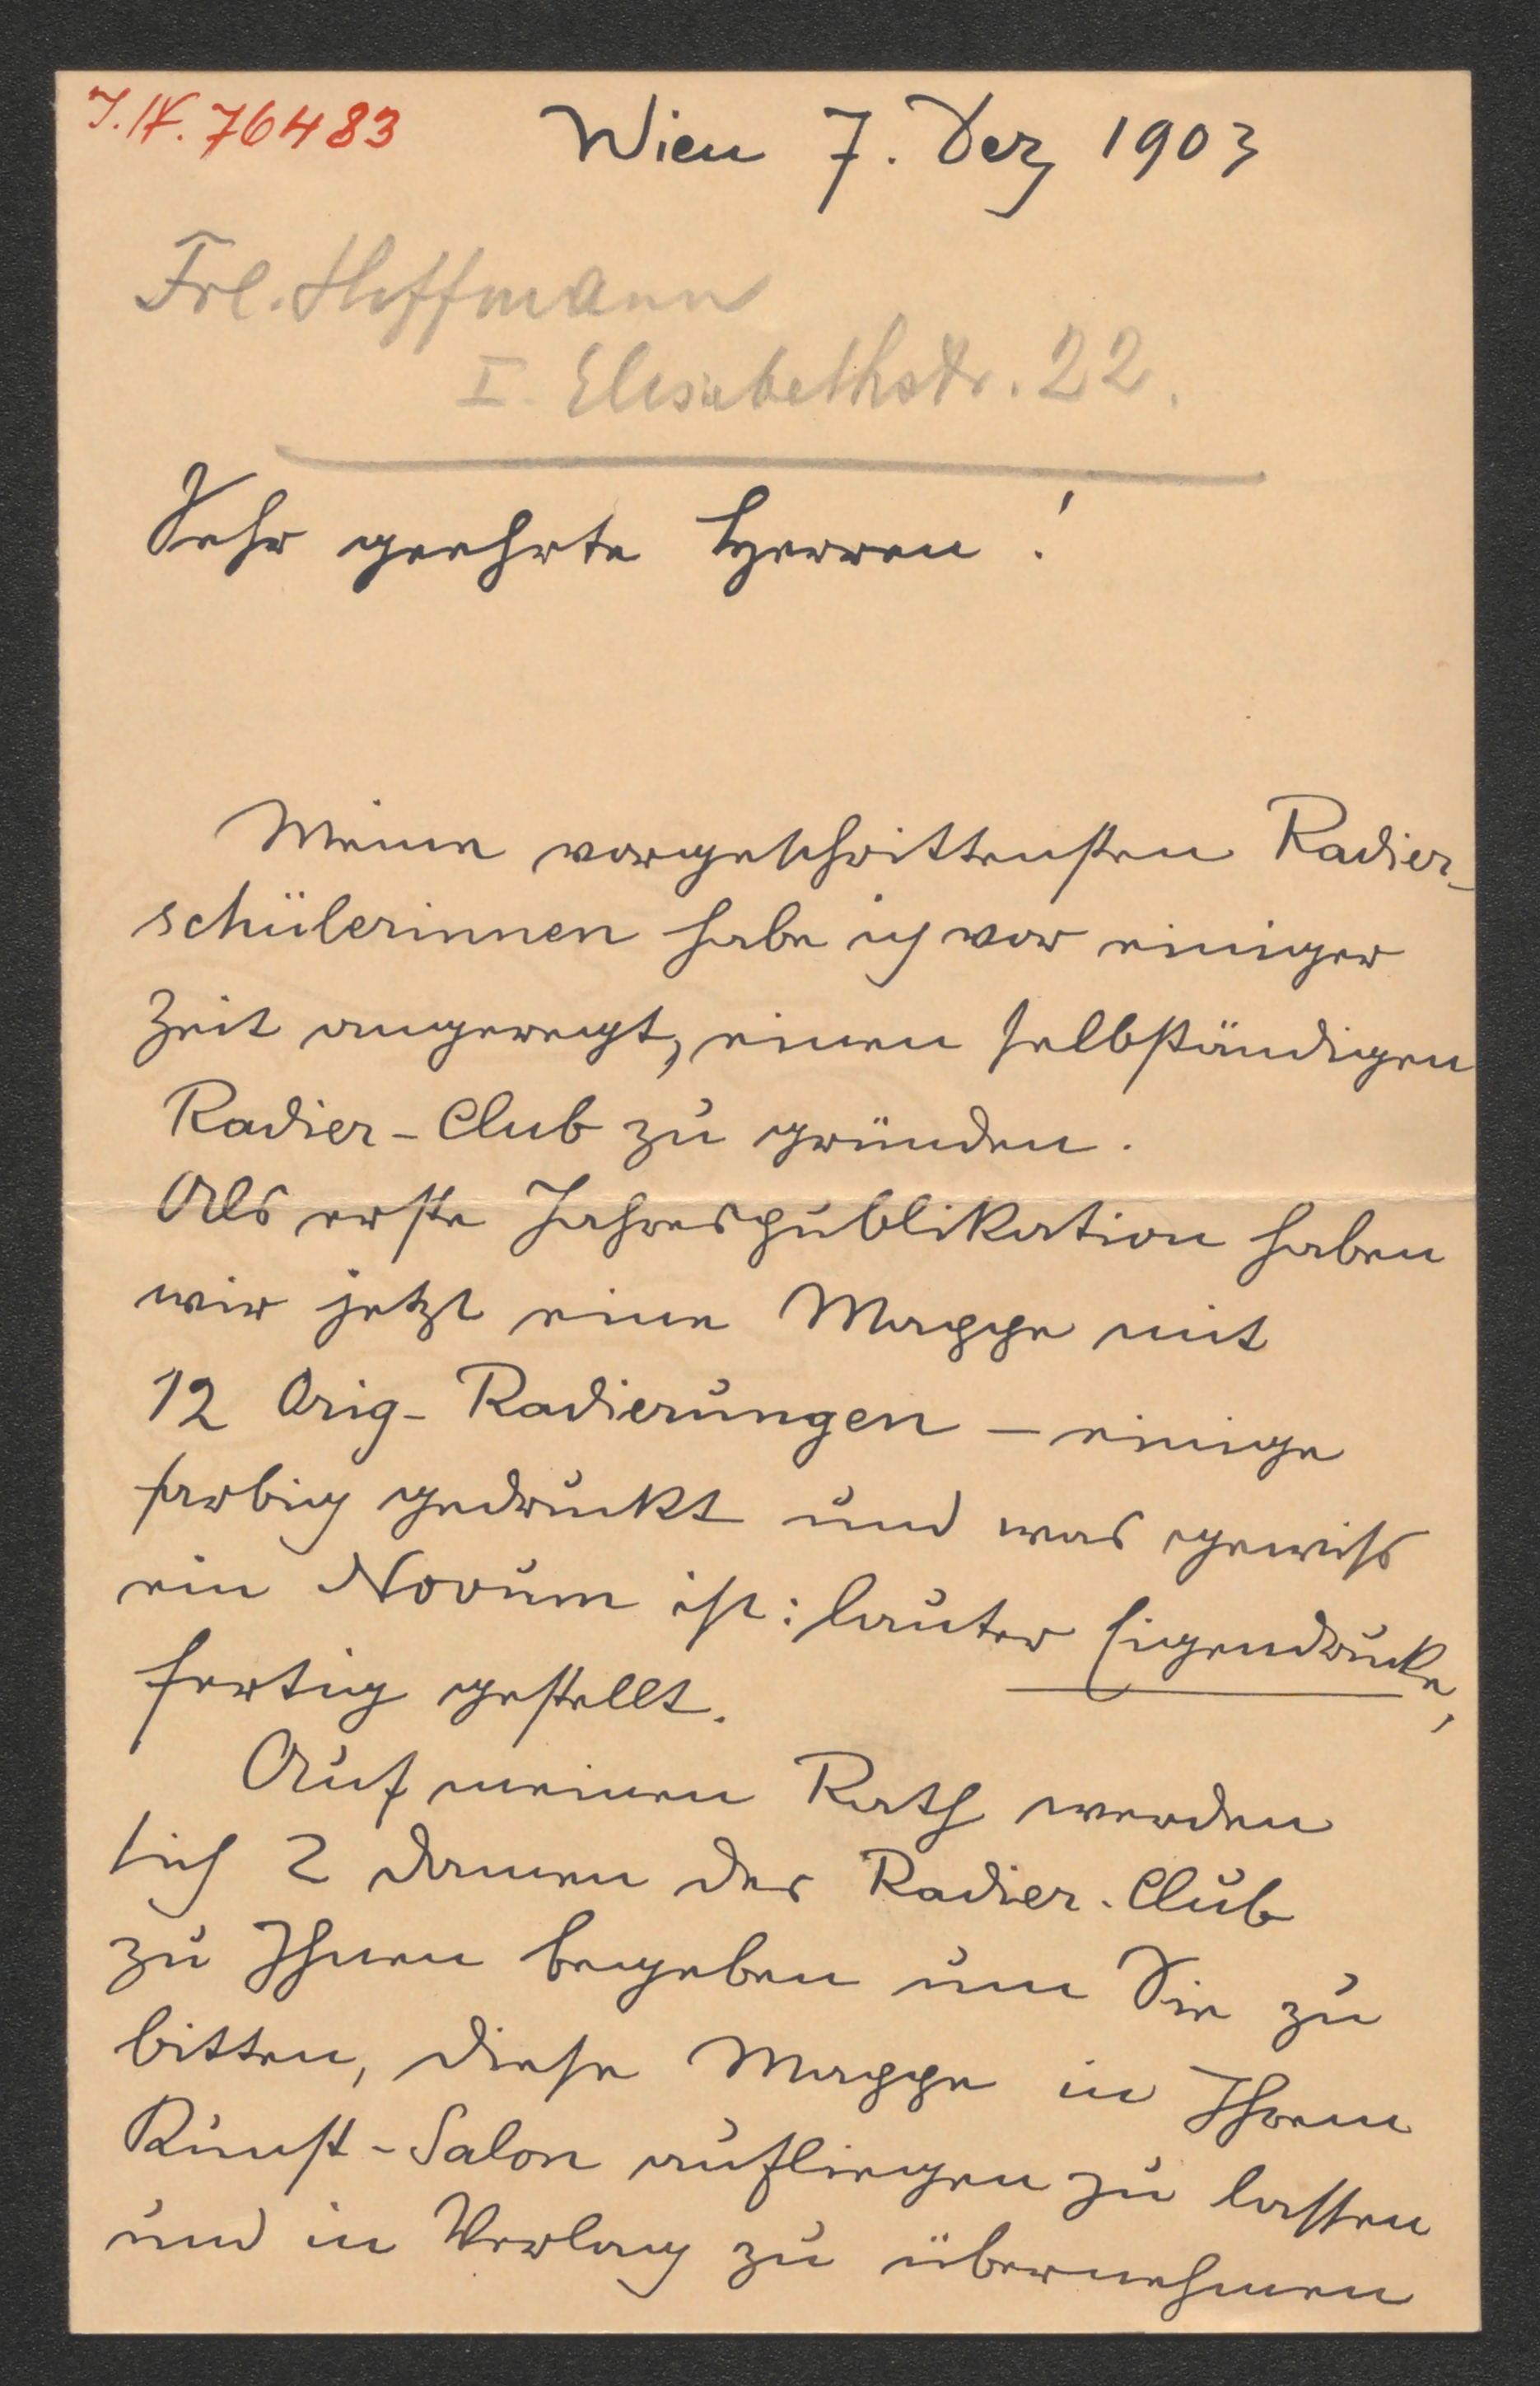 J.N. 76483
Wien 7. Dez 1903
Frl. Hoffmann
I. Elisabethstr. 22.
Sehr geehrte Herren!
Meine vorgeschrittensten Radier-
schülerinnen habe ich vor einiger
Zeit angeregt, einen selbständigen
Radier-Club zu gründen.
Als erste Jahrespublikation haben
wir jetzt eine Mappe mit
12 Orig-Radierungen – einige
farbig gedruckt und was gewiss
ein Novum ist: lauter Eigendrucke,
fertig gestellt.
Auf meinen Rath werden
sich 2 Damen des Radier-Club
zu Ihnen begeben um Sie zu
bitten, diese Mappe in Ihrem
Kunst-Salon aufliegen zu lassen
und in Verlag zu übernehmen